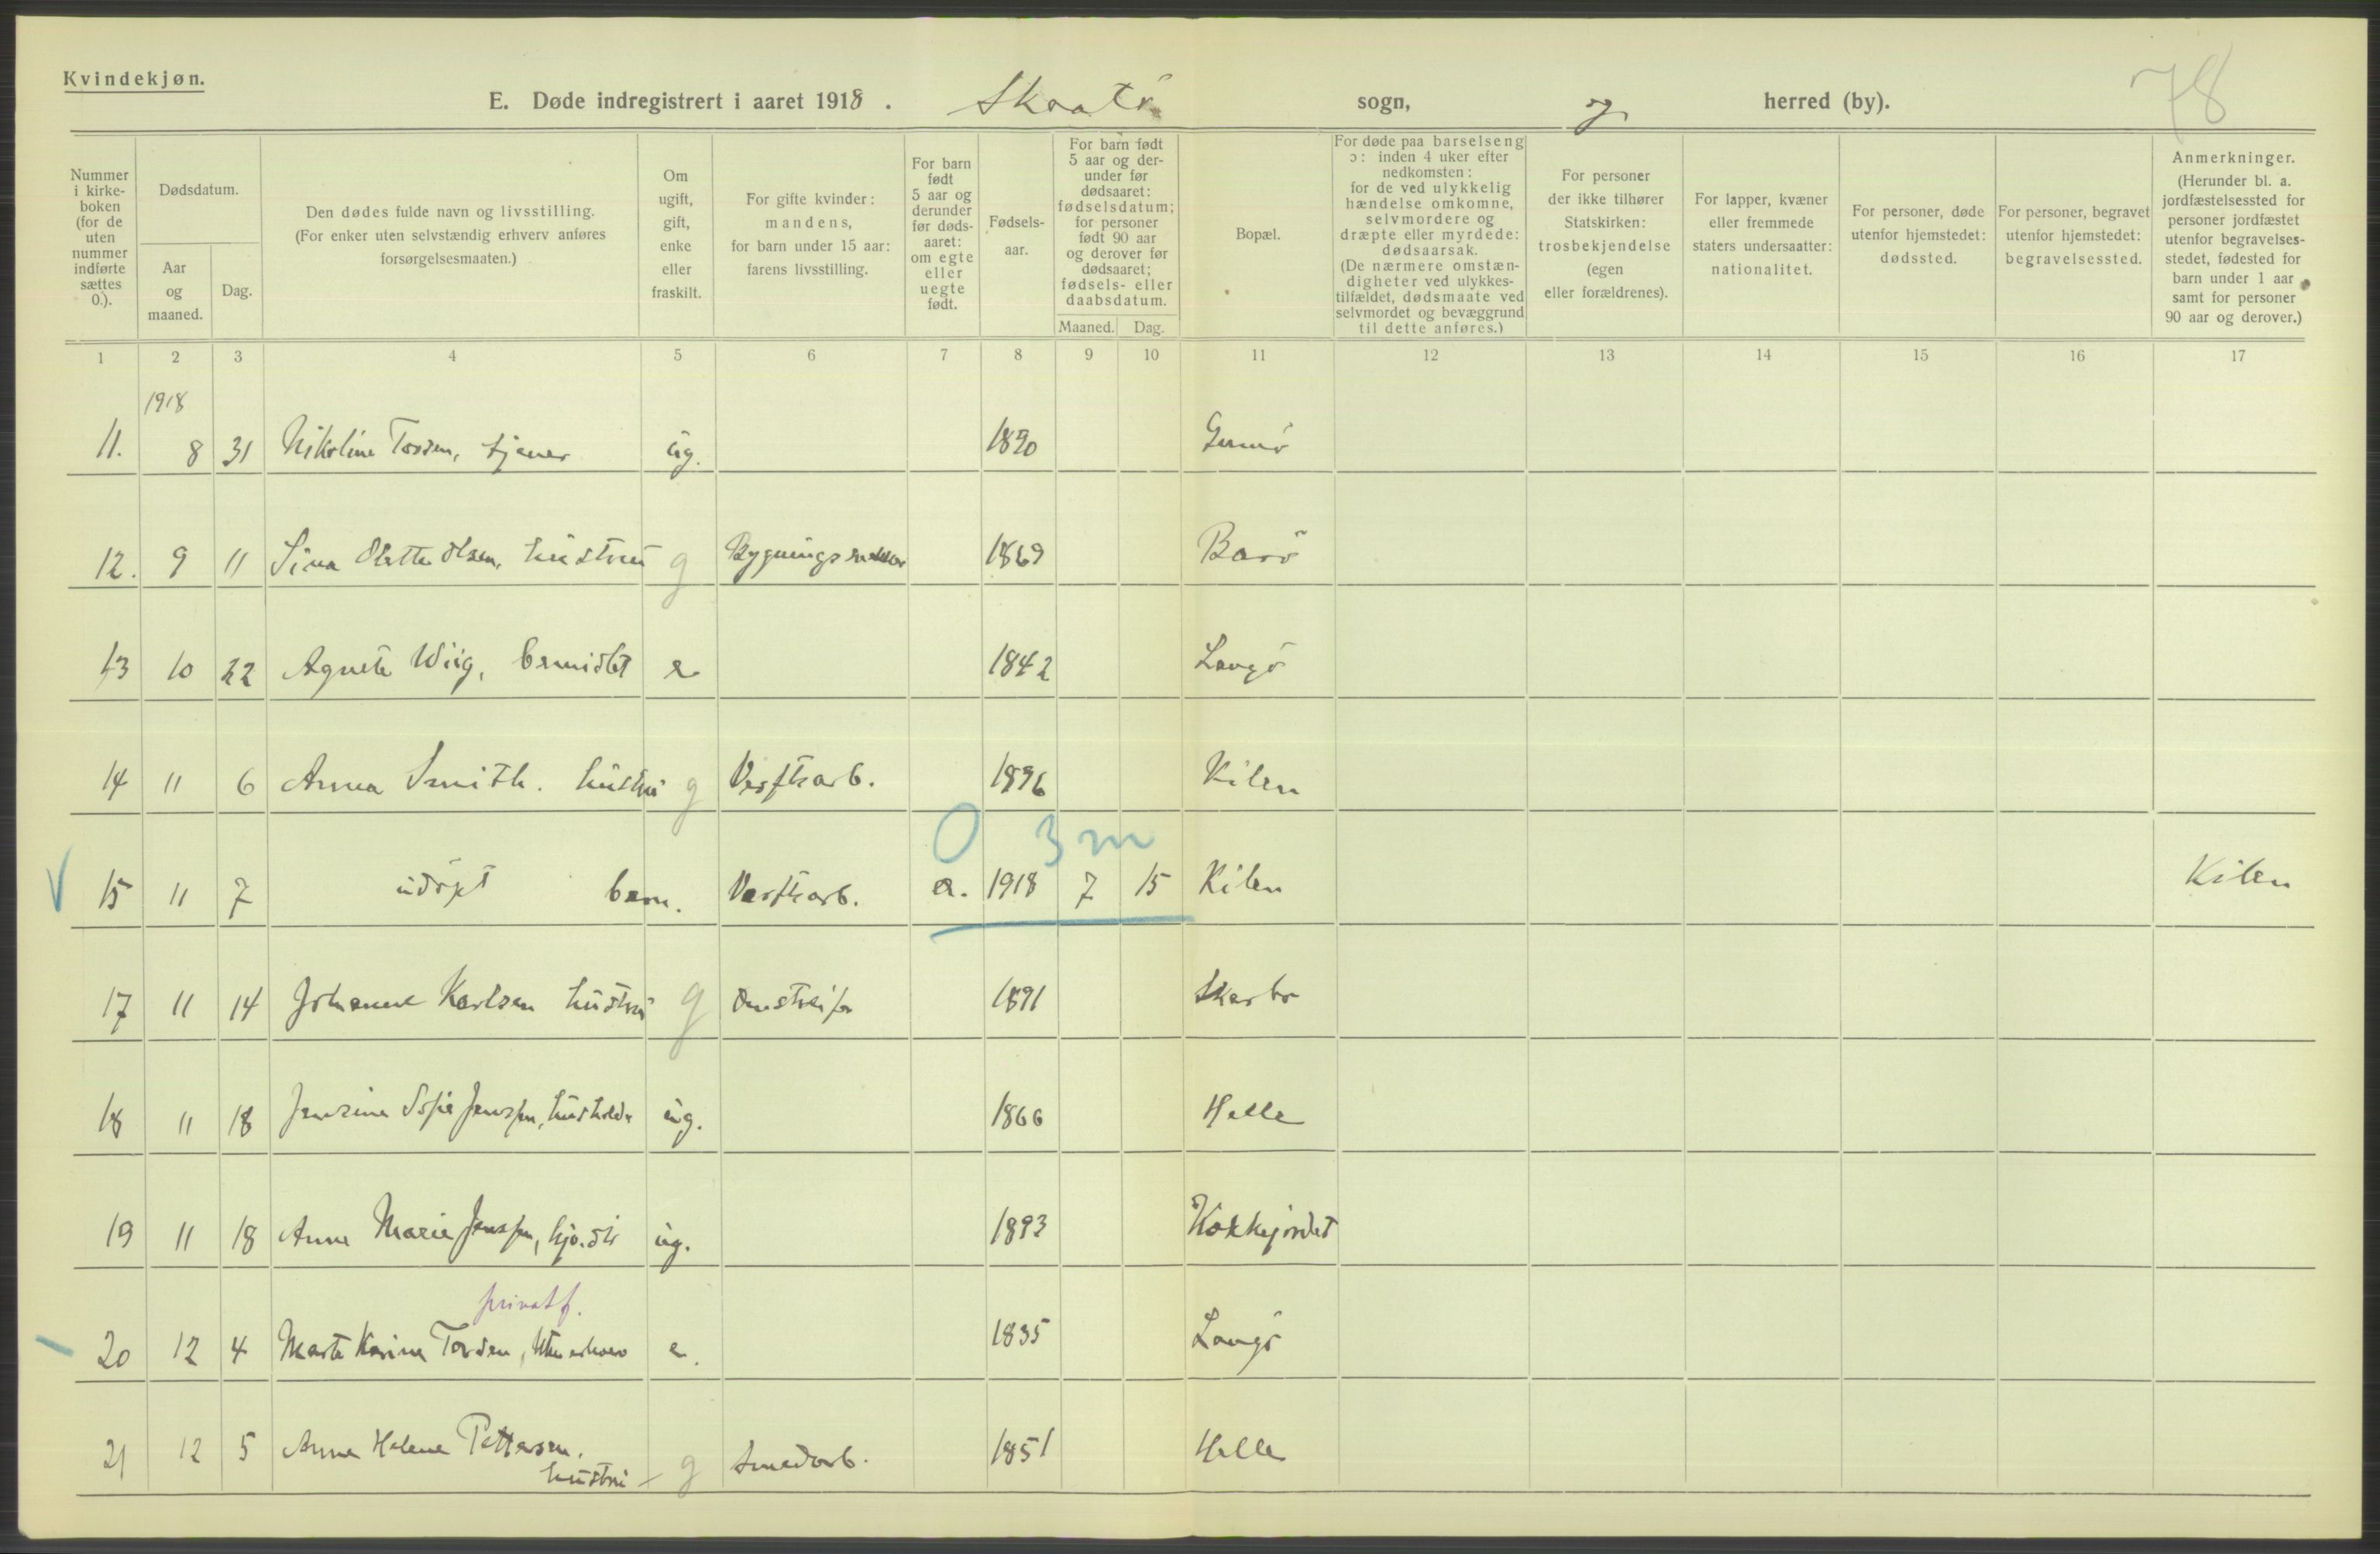 Kvindekjøn.
78
E. Døde indregistrert i aaret 1918. Skaatö sogn, og herred (by).
Nummer i kirke- boken (for de uten nummer indførte sættes 0.).
Dødsdatum.
Aar og maaned.
Dag.
Den dødes fulde navn og livsstilling.
(For enker uten selvstændig erhverv anføres forsørgelsesmaaten.)
Om ugift, gift, enke eller fraskilt.
For gifte kvinder: mandens, for barn under 15 aar: farens livsstilling.
For barn født 5 aar og derunder før døds- aaret: om egte eller uegte født.
Fødsels- aar.
For barn født 5 aar og der- under før dødsaaret: fødselsdatum; for personer født 90 aar og derover før dødsaaret; fødsels- eller daabsdatum.
Maaned. Dag.
Bopæl.
For døde paa barselseng ɔ: inden 4 uker efter nedkomsten: for de ved ulykkelig hændelse omkomne, selvmordere og dræpte eller myrdede: dødsaarsak. (De nærmere omstæn- digheter ved ulykkes- tilfældet, dødsmaate ved selvmordet og bevæggrund til dette anføres.)
For personer der ikke tilhører Statskirken: trosbekjendelse (egen eller forældrenes).
For lapper, kvæner eller fremmede staters undersaatter: nationalitet.
For personer, døde utenfor hjemstedet: dødssted.
For personer, begravet utenfor hjemstedet: begravelsessted.
Anmerkninger. (Herunder bl. a. jordfæstelsessted for personer jordfæstet utenfor begravelses- stedet, fødested for barn under 1 aar samt for personer 90 aar og derover.)
1 2 3 4 5 6 7 8 9 10 11 12 13 14 15 16 17
1918
11. 8 31 Nikoline Torsen, tjener ug. 1890 Gumö
12. 9 11 Sina Olette Olsen, hustru g Bygningssnekker 1869 Barö
13 10 22 Agnete Wiig, bemidlet e 1842 Langö
14 11 6 Anna Smith. hustru g Verftsarb. 1896 Kilen
0 3 m
V 15 11 7 udöpt barn. Verftsarb. e. 1918 7 15 Kilen Kilen
17 11 14 Johanne Karlsen hustru g 1891 Skarbo
18 11 18 Jensine Sofie Jenssen, hushold. ug. 1866 Helle
19 11 18 Anna Marie Jenssen, ug. 1893
privat f.
20 12 4 Marte Karine Torsen, uten erhverv e. 1835 Langö
21 12 5 Anne Helene Pettersen. g Smedarb. 1851 Helle
hustru